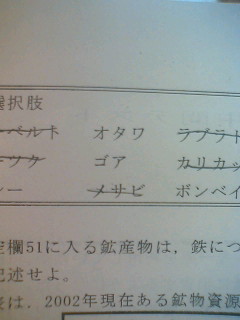 選択肢
ーベルト オタワ ラプラト
ーツク ゴア カリカッ
ー メサビ ボンベイ
定欄51に入る鉱産物は，鉄につ
記述せよ。
表は，2002年現在ある鉱物資源